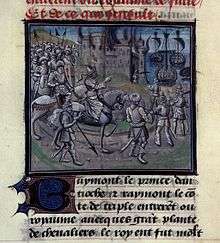 Et de ce que
Buymont le prince dan
tioche z raymont le cō
te de triple entrerēt ou
royaume auecques grāt plante
de cheualiers. le roy ent fut molt